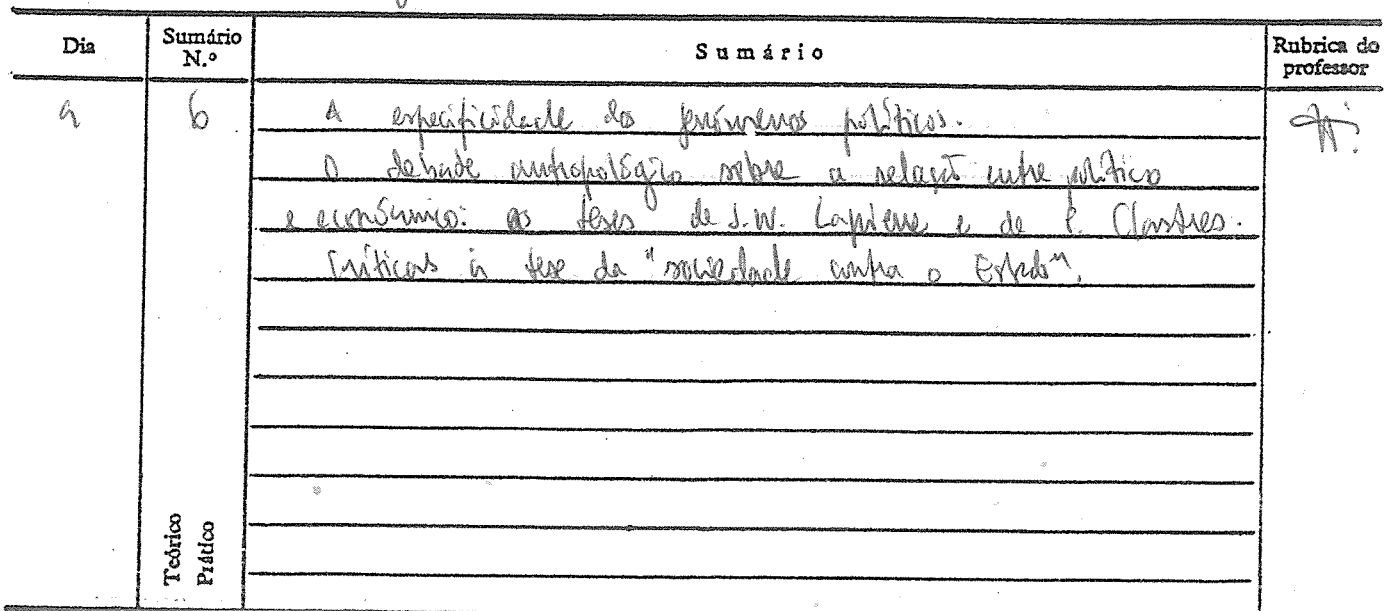 Dia Sumário N.º Sumário Rubrica do professor
9 6 A especificidade dos fenómenos políticos.
O debate antropológico sobre a relação entre político
e económico: as teses de J.W. Lapierre e de P. Clastres.
Críticas à tese da "sociedade contra o Estado".
Teórico
Prático